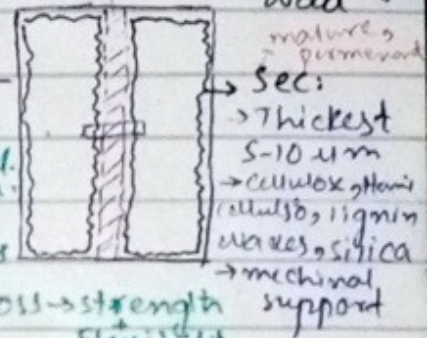 mature,
permenant
→ Sec:
→ Thickest
5-10 um
→ cellulox, Hami
cellulso, lignin
waxes, silica
→ mechinal
support
oss → strength
+